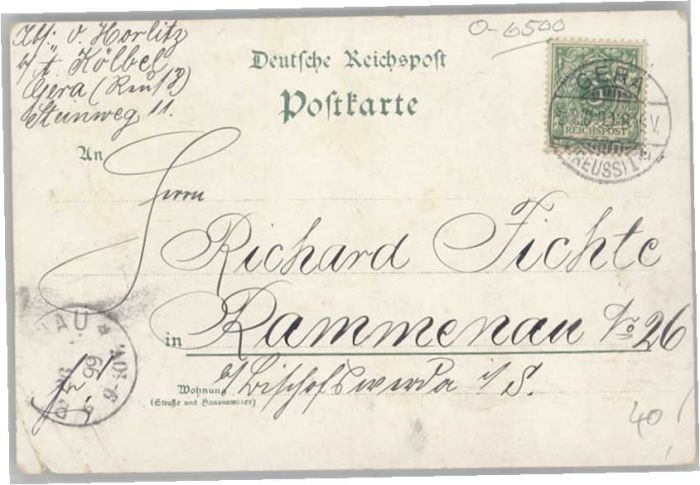 Abs: v. Horlitz
b/ A. Kölbel
Gera (Reuß)
Steinweg 11.
O-6500
Deutsche Reichspost
Postkarte
GERA
REICHSPOST
(REUSS) 1
An
Herrn
Richard Fichte
in Rammenau No 26
Wohnung
(Straße und Hausnummer)
b/ Bischofswerda i/S.
NAU
99
40